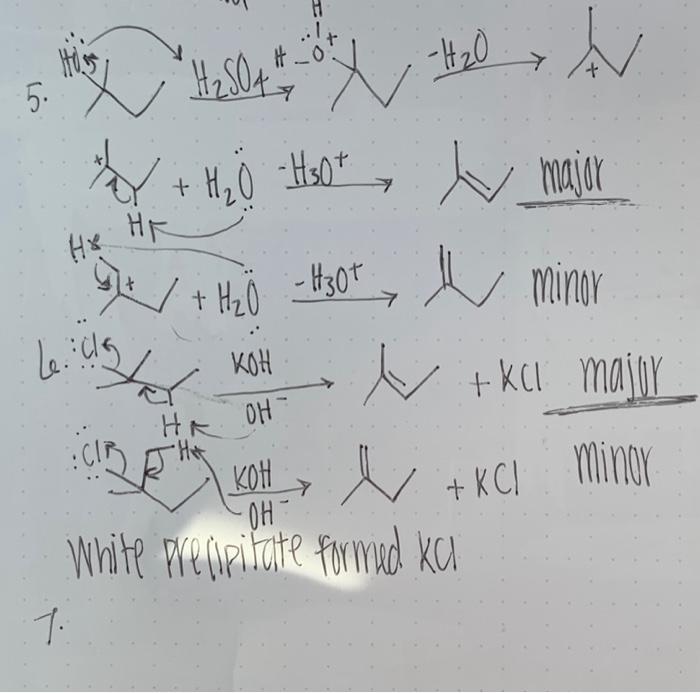 H
5. HO H₂SO₄ H-O+ -H₂O +
+ + H₂O -H₃O+ major
H
H
+ + H₂O -H₃O+ minor
6. :Cl KOH + KCl major
H OH⁻
:Cl H KOH + KCl minor
OH⁻
White precipitate formed KCl
7.